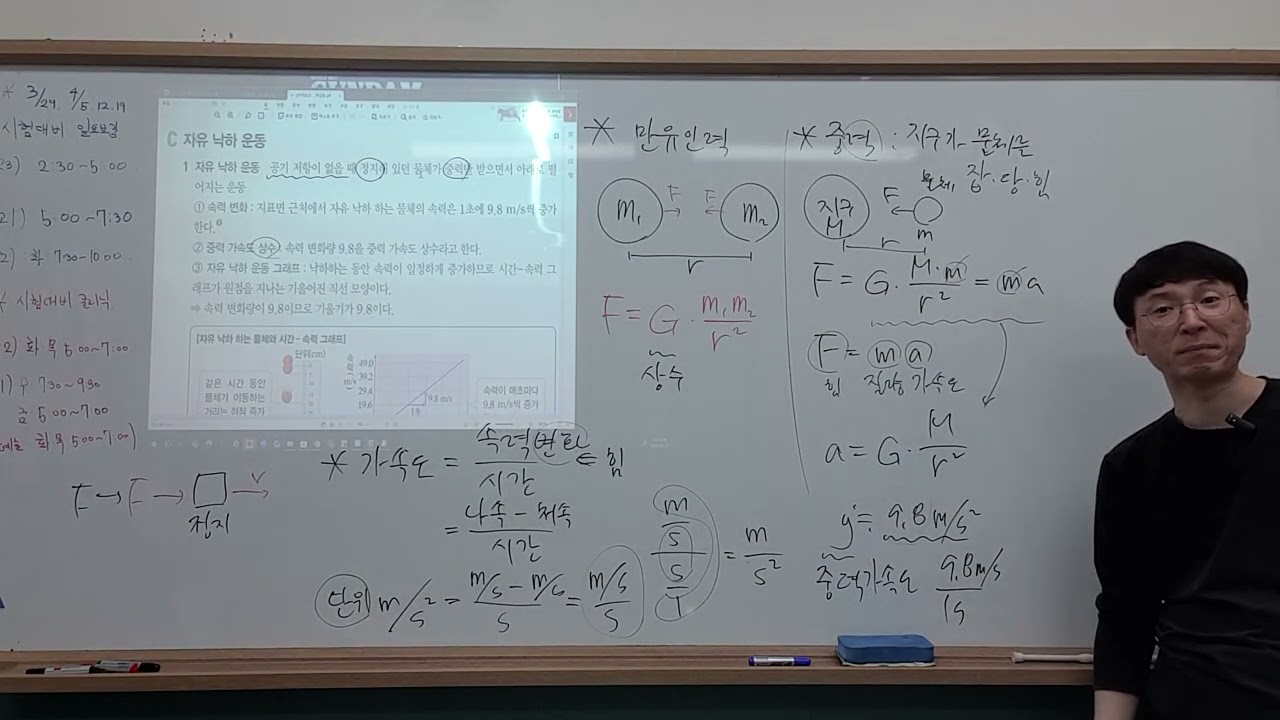 * 3/24. 4/5. 12. 19
시험대비 일요보강
2:30~5:00
5:00~7:30
화 7:30-10:00
시험대비 클리닉
화 목 5:00~7:00
730~930
금 5:00~7:00
화 목 5:00~7:00)
C 자유 낙하 운동
1 자유 낙하 운동 공기 저항이 없을 때 정지해 있던 물체가 중력만 받으면서 아래로 떨
어지는 운동
① 속력 변화 : 지표면 근처에서 자유 낙하 하는 물체의 속력은 1초에 9.8 m/s씩 증가
한다.
② 중력 가속도 상수 : 속력 변화량 9.8을 중력 가속도 상수라고 한다.
③ 자유 낙하 운동 그래프 : 낙하하는 동안 속력이 일정하게 증가하므로 시간-속력 그
래프가 원점을 지나는 기울어진 직선 모양이다.
⇒ 속력 변화량이 9.8이므로 기울기가 9.8이다.
[자유 낙하 하는 물체와 시간 - 속력 그래프]
단위(cm)
같은 시간 동안
물체가 이동하는
거리는 점점 증가
속력(m/s)
49.0
39.2
29.4
19.6
9.8 m/s
1초
속력이 매초마다
9.8 m/s씩 증가
F → F → 정지 → v
* 가속도 = 속력변화/시간 ⇐ 힘
= 나속 - 처속/시간
단위 m/s² = m/s - m/s/s = m/s/s
m/s/s/1 = m/s²
* 만유인력
m₁ → F F ← m₂
r
F = G · m₁m₂/r²
상수
* 중력 : 지구가 물체를
잡·당·힘
지구 M F ← 물체 m
r
F = G · M·m/r² = m a
F = m a
힘 질량 가속도
a = G · M/r²
g ≒ 9.8 m/s²
중력가속도 9.8 m/s/1s